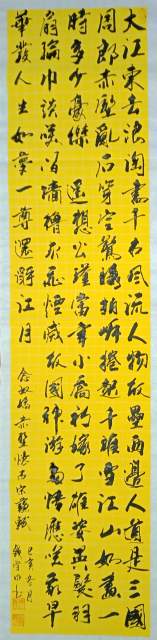 大江東去浪淘盡千古風流人物故壘西邊人道是三國
周郎赤壁亂石穿空驚濤拍岸捲起千堆雪江山如畫一
時多少豪傑 遥想公瑾當年小喬初嫁了雄姿英發羽
扇綸巾談笑間檣櫓灰飛煙滅故國神游多情應笑我早
華發人生如夢一尊還酹江月
念奴嬌赤壁懷古宋蘇軾
己亥冬月